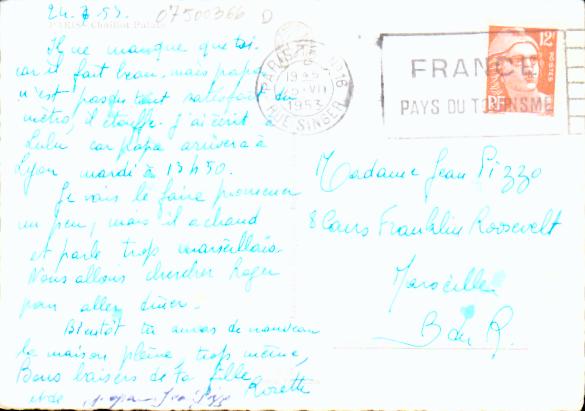 24.7.53. 07500366 D
PARIS. Chaillot Palace
Il ne manque que toi.
car il fait beau. mais papa
n'est pas du tout satisfait du
métro, il étouffe. J'ai écrit à
Lulu car papa arrivera à
Lyon mardi à 17h50.
Je vais le faire promener
un peu, mais il a chaud
et parle trop marseillais.
Nous allons chercher Roger
pour aller dîner.
Bientôt tu auras de nouveau
la maison pleine, trop même,
Bons baisers de ta fille
Rosette
et de
PARIS
N°16
1953
RUE SINGER
FRANCE
PAYS DU TOURISME
12F
POSTES
RF
Madame Jean Pizzo
8 Cours Franklin Roosevelt
Marseille
B du R.